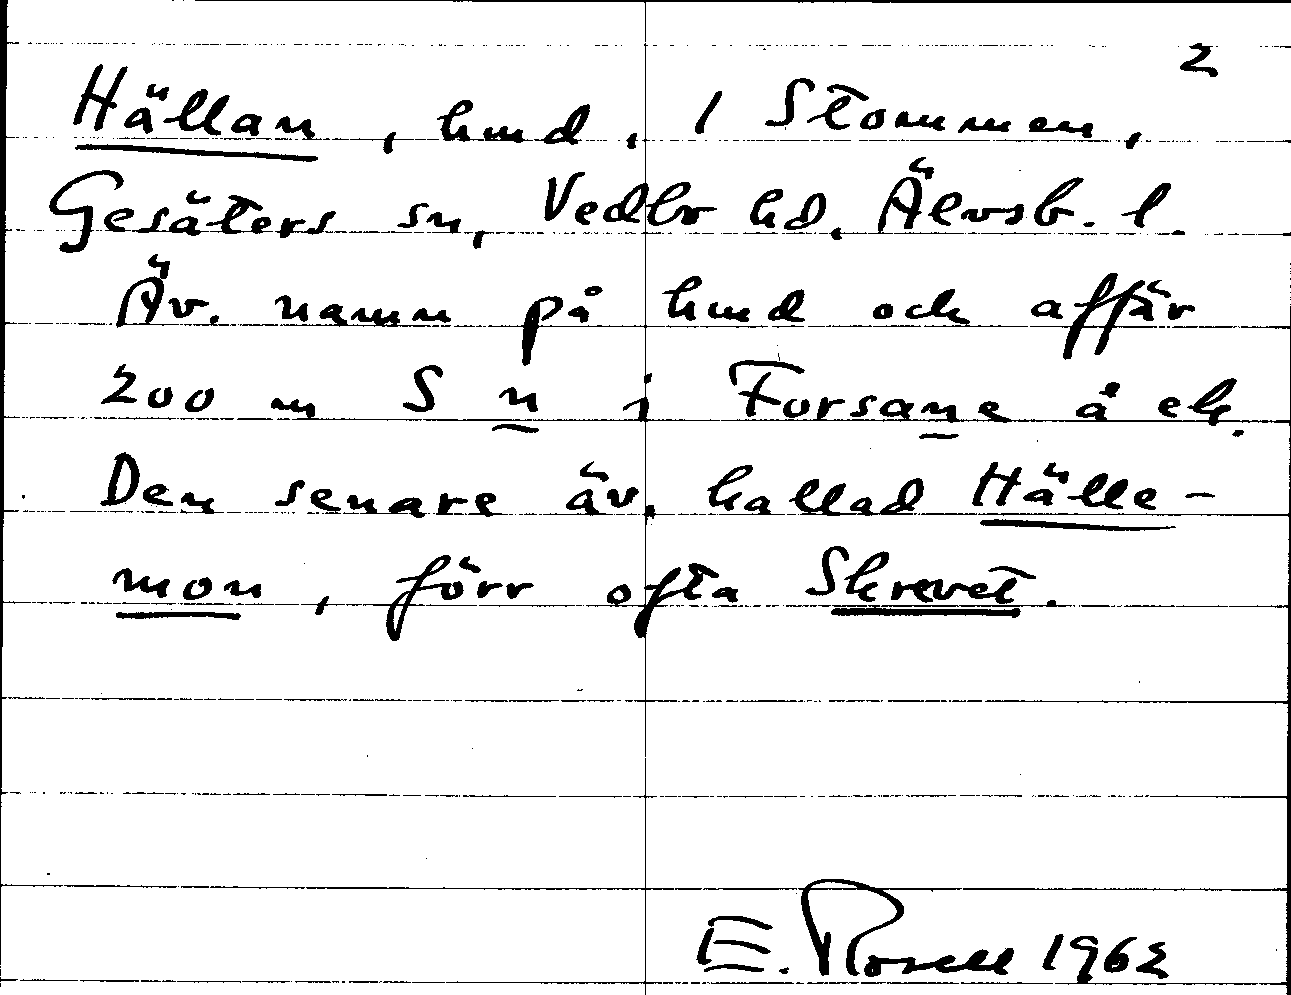 2
Hällan, hmd, 1 Stommen,
Gesäters sn, Vedbo hd, Älvsb. l.
Äv. namn på hmd och affär
200 m S n i Forsane å ek.
Den senare äv. kallad Hälle-
mon, förr ofta Skrevet.
E. Rosell 1962